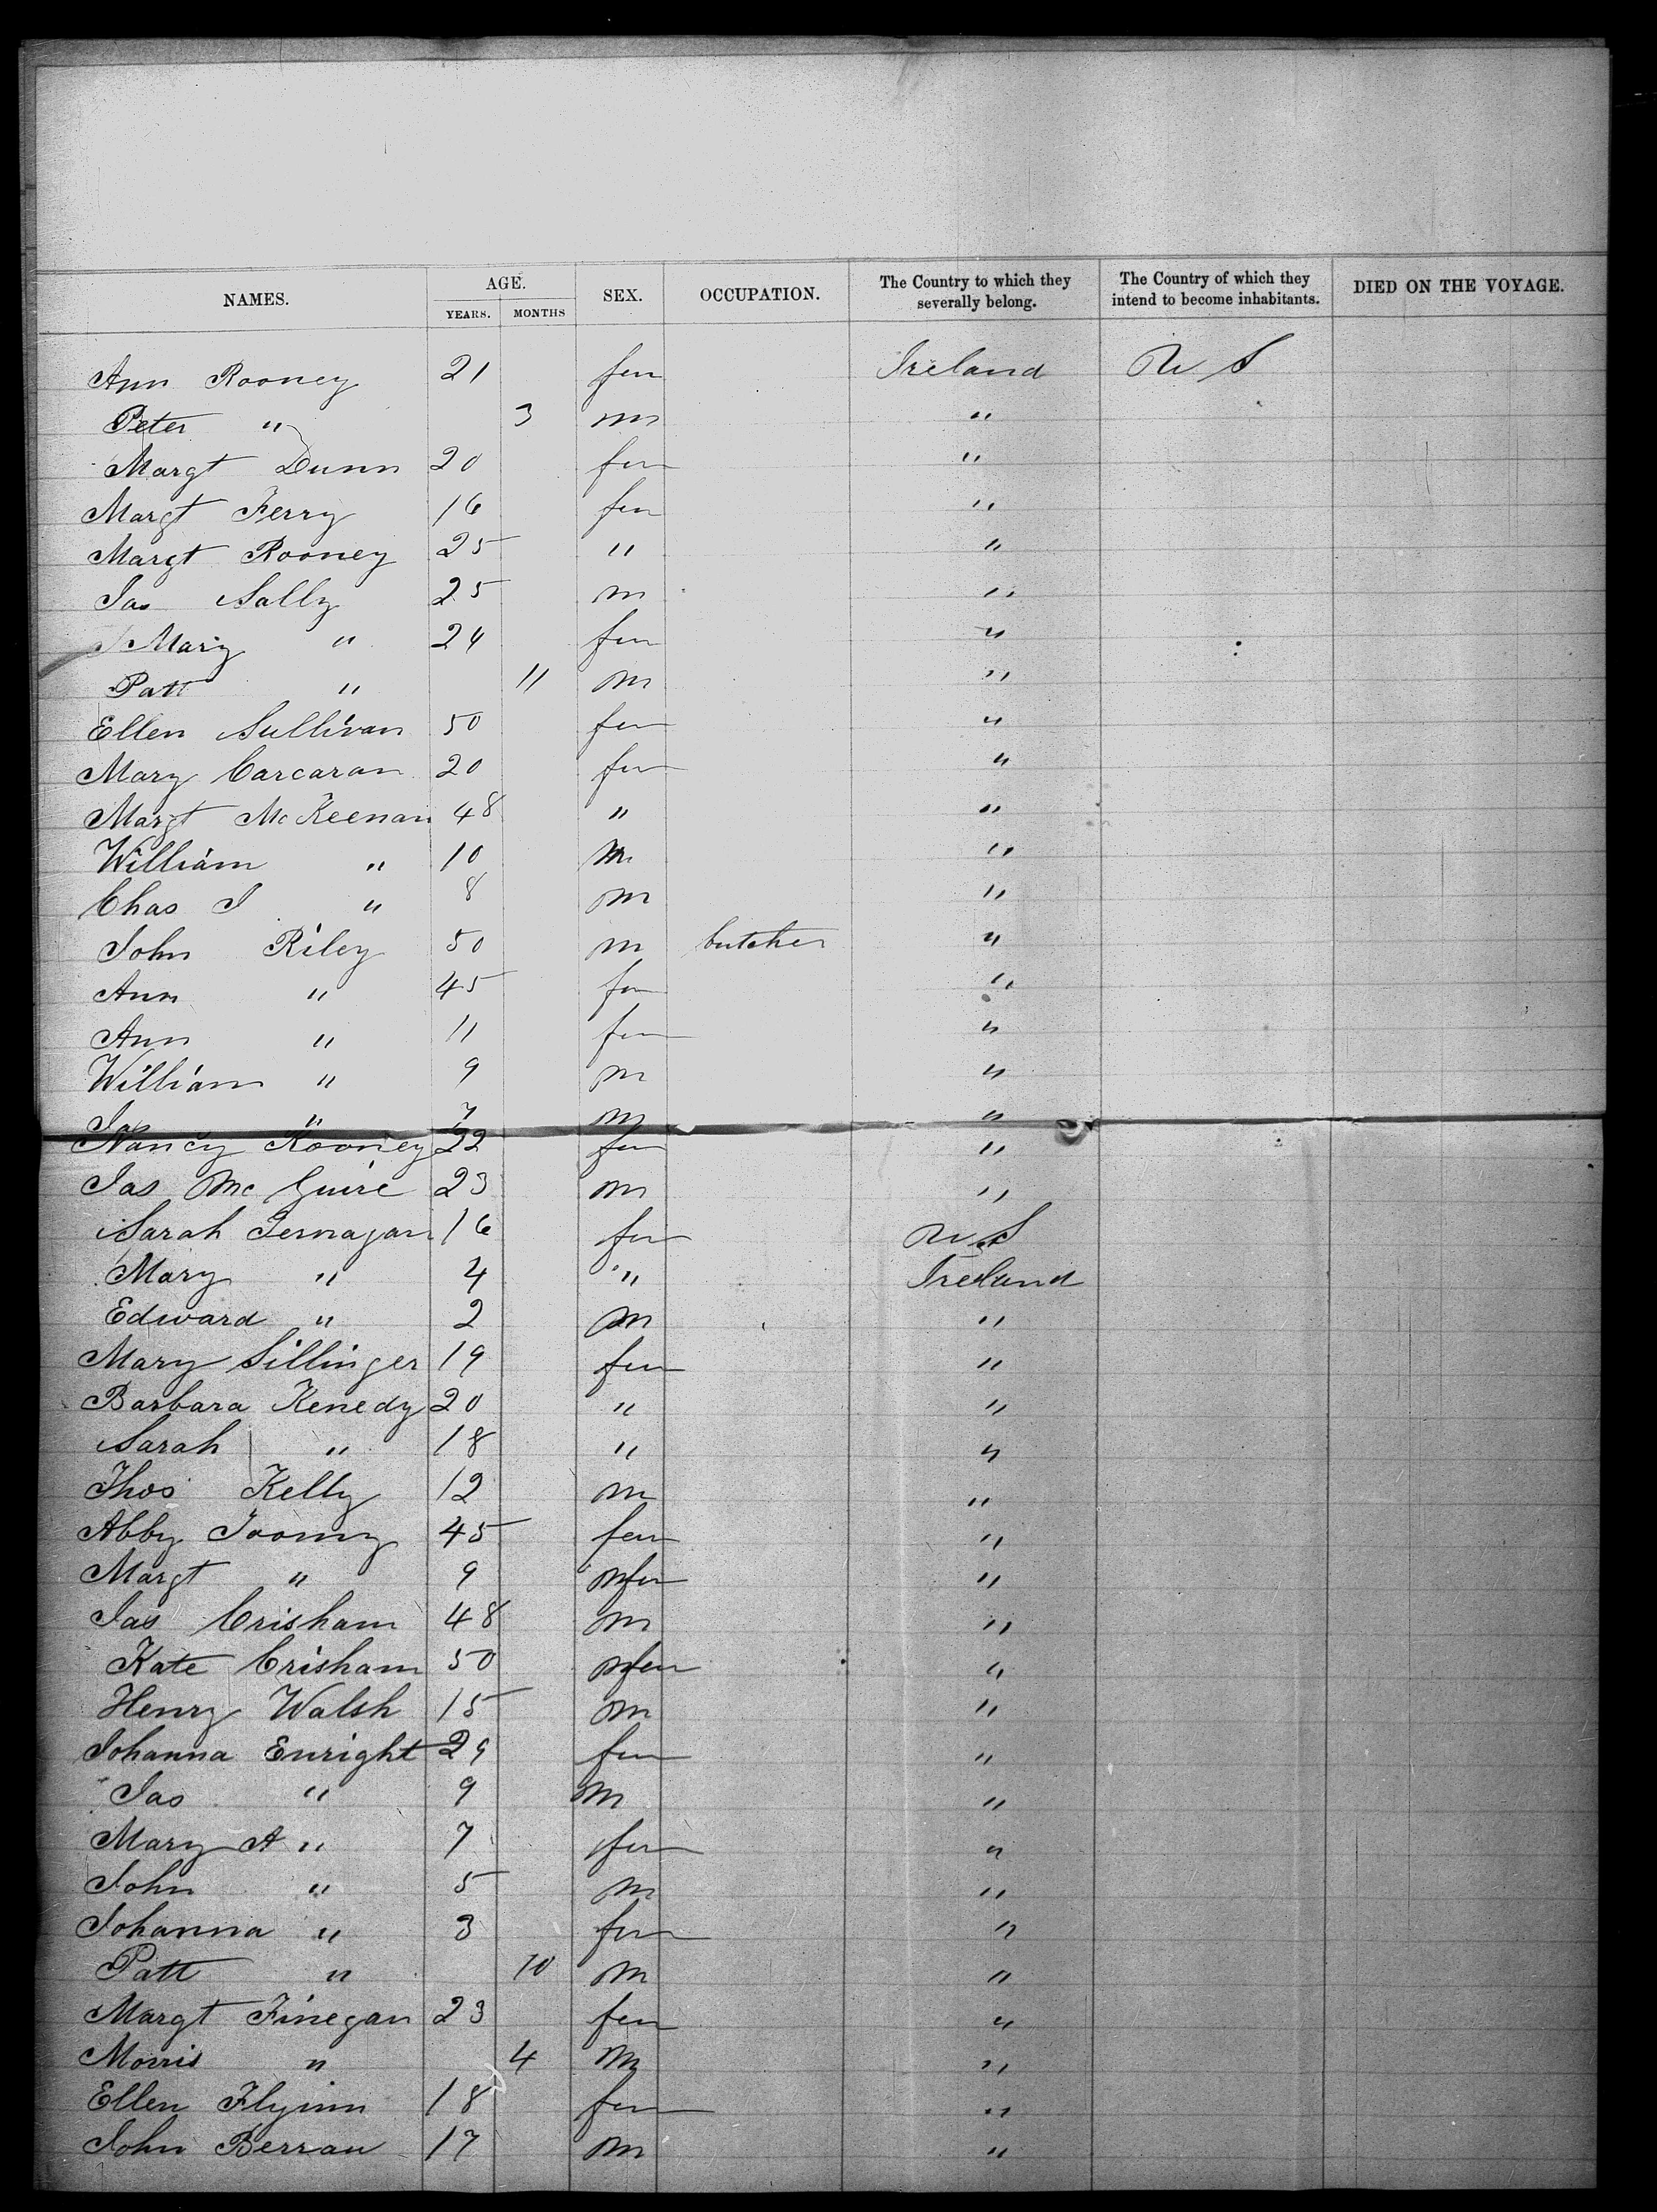 NAMES. AGE. YEARS. MONTHS SEX. OCCUPATION. The Country to which they severally belong. The Country of which they intend to become inhabitants. DIED ON THE VOYAGE.
Ann Rooney 21 fem Ireland U S
Peter " 3 m "
Margt Dunn 20 fem "
Margt Ferry 16 fem "
Margt Rooney 25 " "
Jas Sally 25 m "
Mary " 24 fem "
Patt " 11 m "
Ellen Sullivan 50 fem "
Mary Carcaran 20 fem "
Margt McKeenan 48 " "
William " 10 m "
Chas J " 8 m "
John Riley 50 m butcher "
Ann " 45 fem "
Ann " 11 fem "
William " 9 m "
Jas " 7 m "
Nancy Rooney 22 fem "
Jas McGuire 23 m "
Sarah 16 fem U S
Mary " 4 " Ireland
Edward " 2 m "
Mary Sillinger 19 fem "
Barbara Kenedy 20 " "
Sarah " 18 " "
Thos Kelly 12 m "
Abby Toomy 45 fem "
Margt " 9 fem "
Jas Crisham 48 m "
Kate Crisham 50 fem "
Henry Walsh 15 m "
Johanna Enright 29 fem "
Jas " 9 m "
Mary A " 7 fem "
John " 5 m "
Johanna " 3 fem "
Patt " 10 m "
Margt Finegan 23 fem "
Morris " 4 m "
Ellen Flyinn 18 fem "
John Berran 17 m "